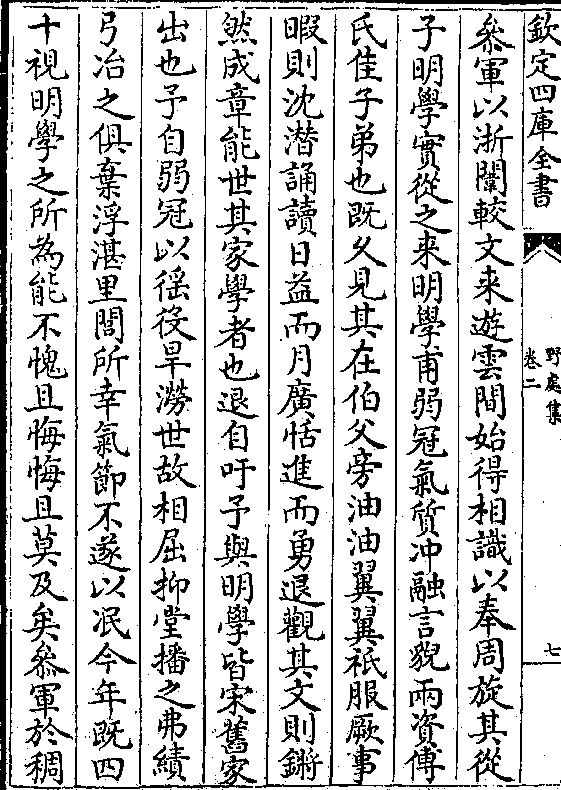 欽定四庫全書
野處集
卷二
七
叅軍以浙闈較文来遊雲間始得相識以奉周旋其從
子明學實從之来明學甫弱冠氣質冲融言貌兩資傅
氏佳子弟也既乆見其在伯父旁油油翼翼祇服厥事
暇則沈潜誦讀日益而月廣恬進而勇退觀其文則鏘
然成章能世其家學者也退自吁予與明學皆宋舊家
出也予自弱冠以徭役旱澇世故相屈抑堂播之弗績
弓冶之俱棄浮湛里閭所幸氣節不遂以冺今年既四
十視明學之所為能不愧且悔悔且莫及矣叅軍於稠